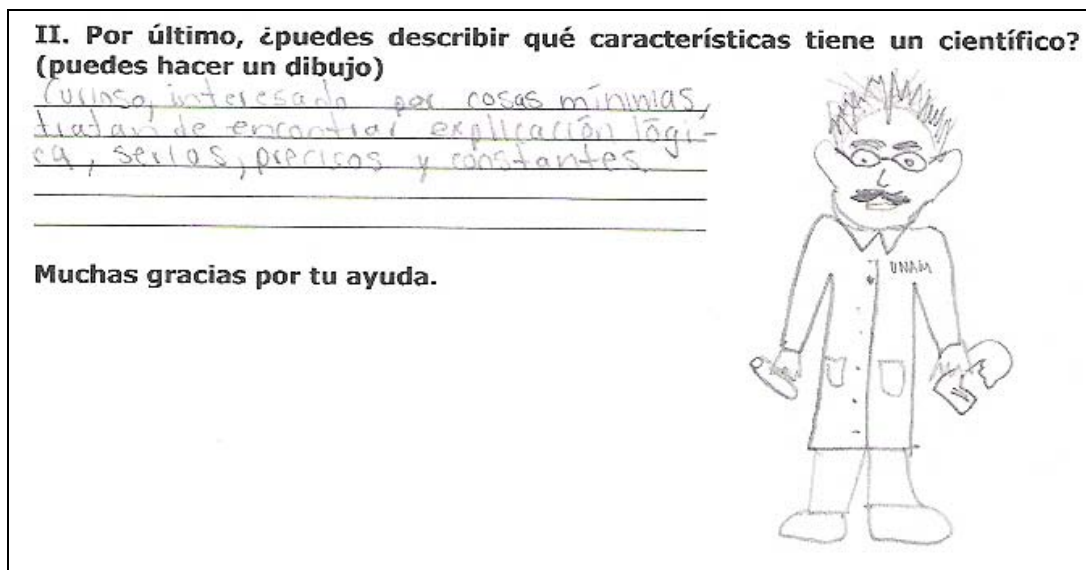 II. Por último, ¿puedes describir qué características tiene un científico?
(puedes hacer un dibujo)
Curioso, interesado por cosas mínimas,
tratan de encontrar explicación lógi-
ca, serios, precisos y constantes.
Muchas gracias por tu ayuda.
UNAM